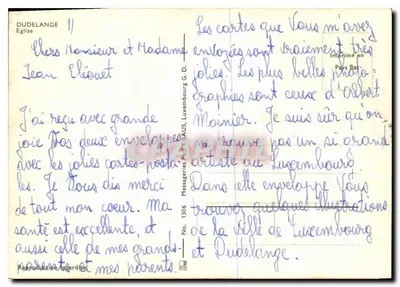 DUDELANGE
Eglise
11
Chers Monsieur et Madame
Jean
J'ai reçu avec grande
joie Vos deux enveloppes
avec les jolies cartes-posta-
les. Je Vous dis merci
de tout mon coeur. Ma
santé est excellente, et
aussi celle de mes grands-
parents et mes parents.
Reproduction interdite
No. 1306 Messageries Luxembourg G. D.
Imprimé en
Pays Bas
Les cartes que Vous m'avez
envoyées sont vraiement très
jolies. Les plus belles photo-
graphies sont ceux d'Albert
Moinier. Je suis sûr qu'on
ne trouve pas un si grand
artiste au Luxembourg
Dans cette enveloppe Vous
trouver quelques illustrations
de la Ville de Luxembourg
et Dudelange.